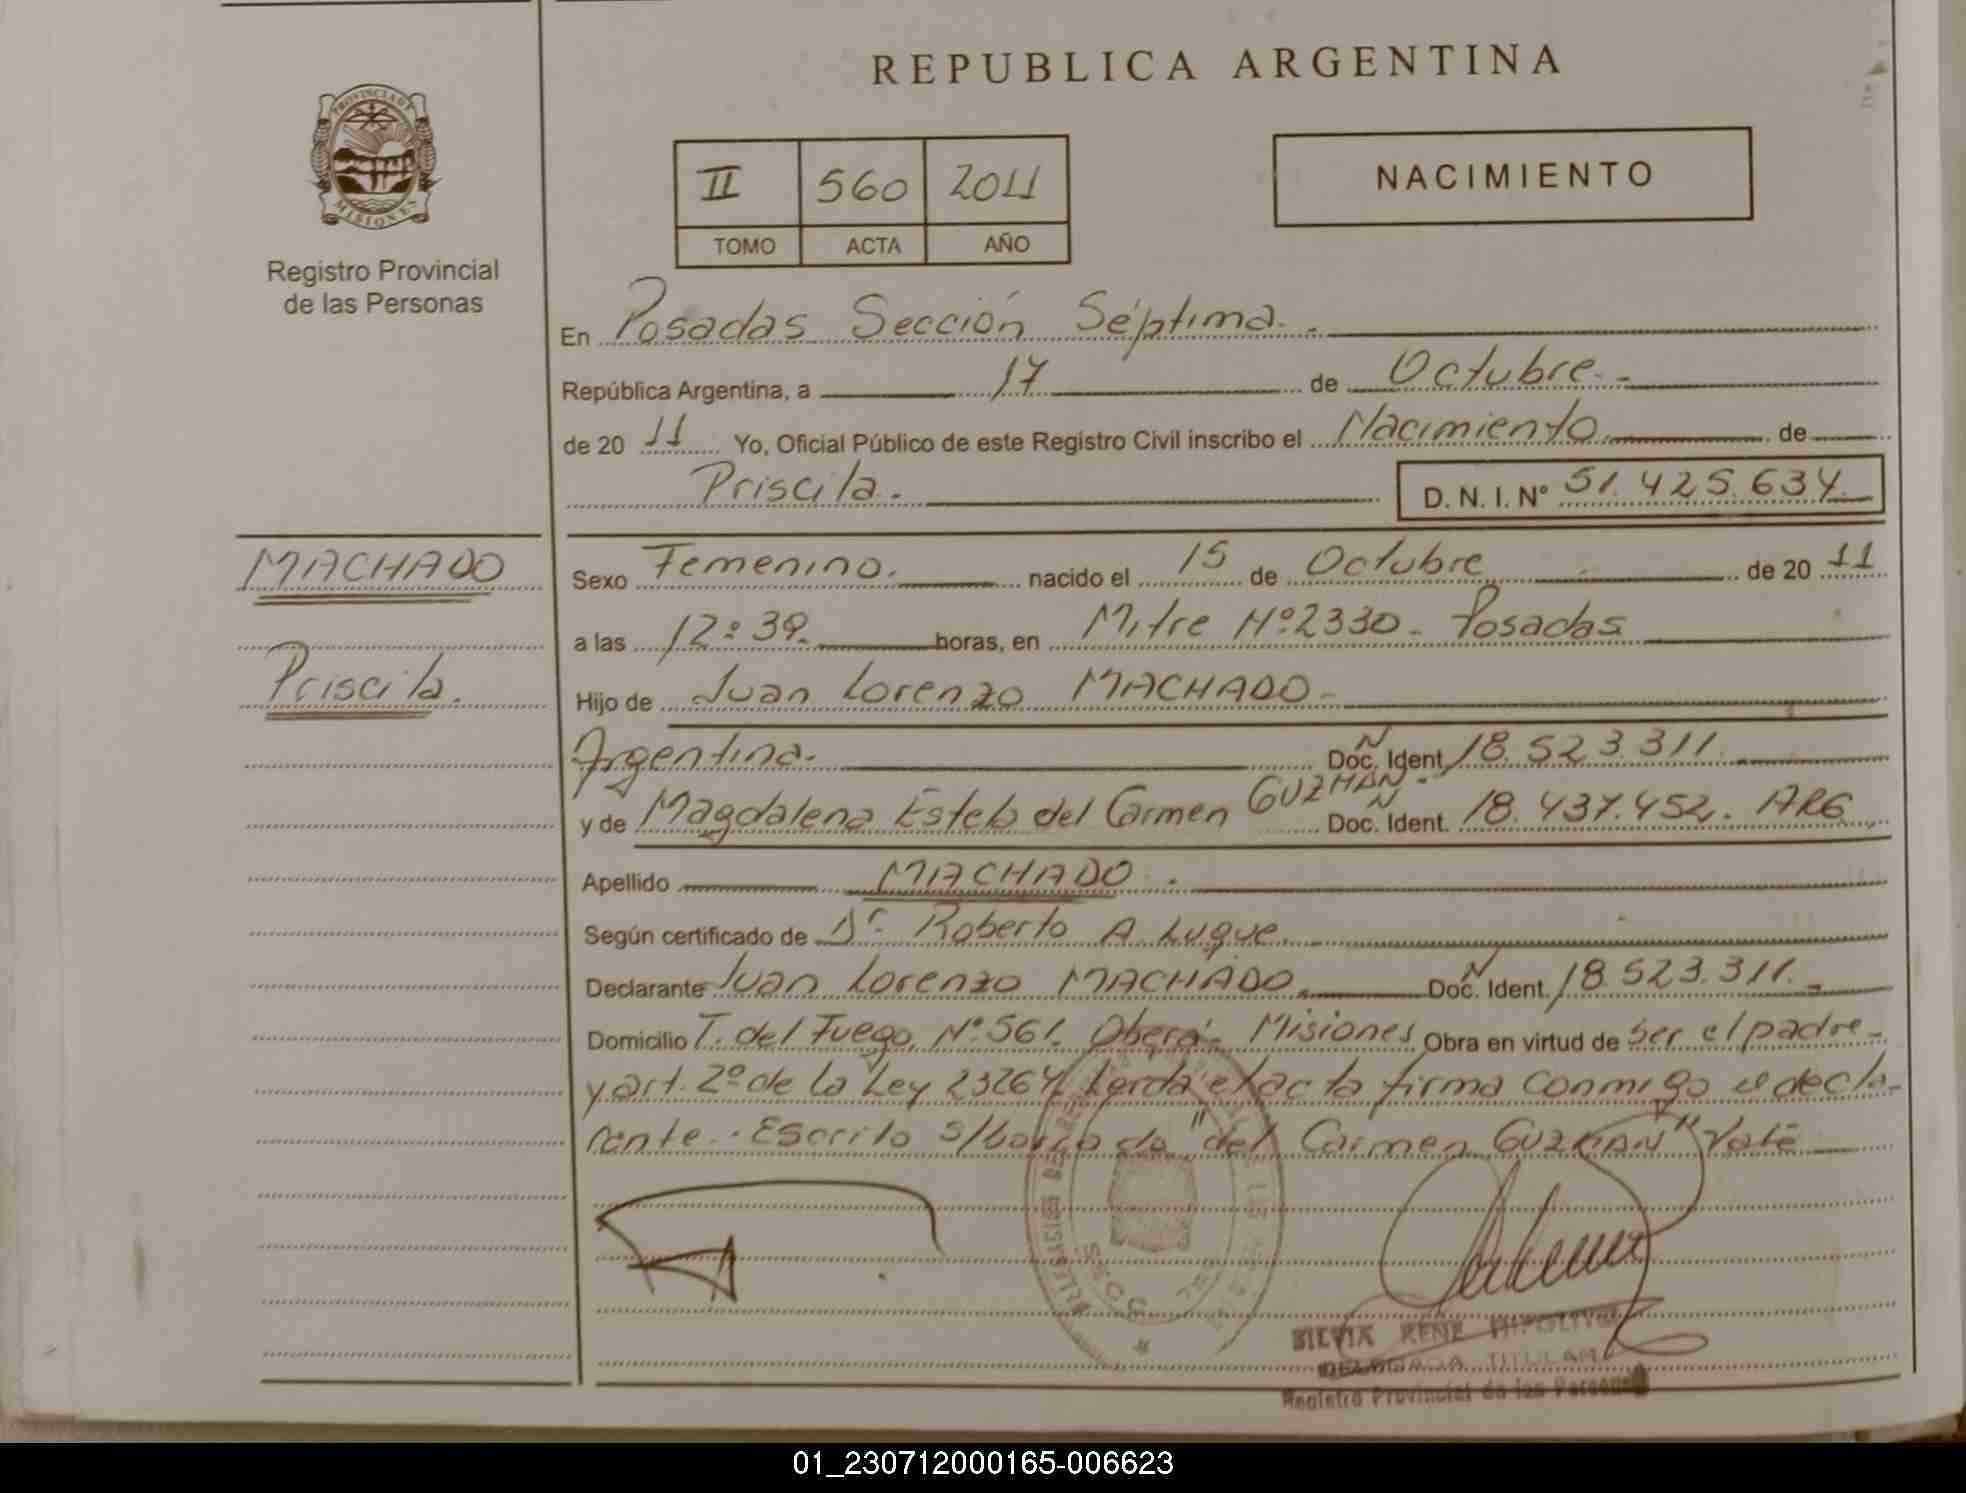 REPUBLICA ARGENTINA
PROVINCIA DE
MISIONES
Registro Provincial
de las Personas
II 560 2011
TOMO ACTA AÑO
NACIMIENTO
En Posadas Sección Séptima.
República Argentina, a 17 de Octubre.-
de 20 11 Yo, Oficial Público de este Registro Civil inscribo el Nacimiento. de
Priscila. D. N. I. Nº 51.425.634
MACHADO
Priscila.
Sexo Femenino. nacido el 15 de Octubre de 20 11
a las 12:39. horas, en Mitre Nº 2330 - Posadas
Hijo de Juan Lorenzo MACHADO-
Argentina. Doc. Ident. N 18.523.311.
y de Magdalena Estela del Carmen GUZMAN. Doc. Ident. N 18.437.452. ARG
Apellido MACHADO.
Según certificado de Dr. Roberto A. Luque
Declarante Juan Lorenzo MACHADO. Doc. Ident. N 18.523.311.-
Domicilio T. del Fuego Nº 561. Oberá- Misiones Obra en virtud de Ser el padre-
y art. 2º de la Ley 23264. Leída el acta firma conmigo el decla-
rante. Escrito s/borrado "del Carmen GUZMAN" Vale
SILVIA RENE HIPOLITO
DELEGADA TITULAR
Registro Provincial de las Personas
01_230712000165-006623